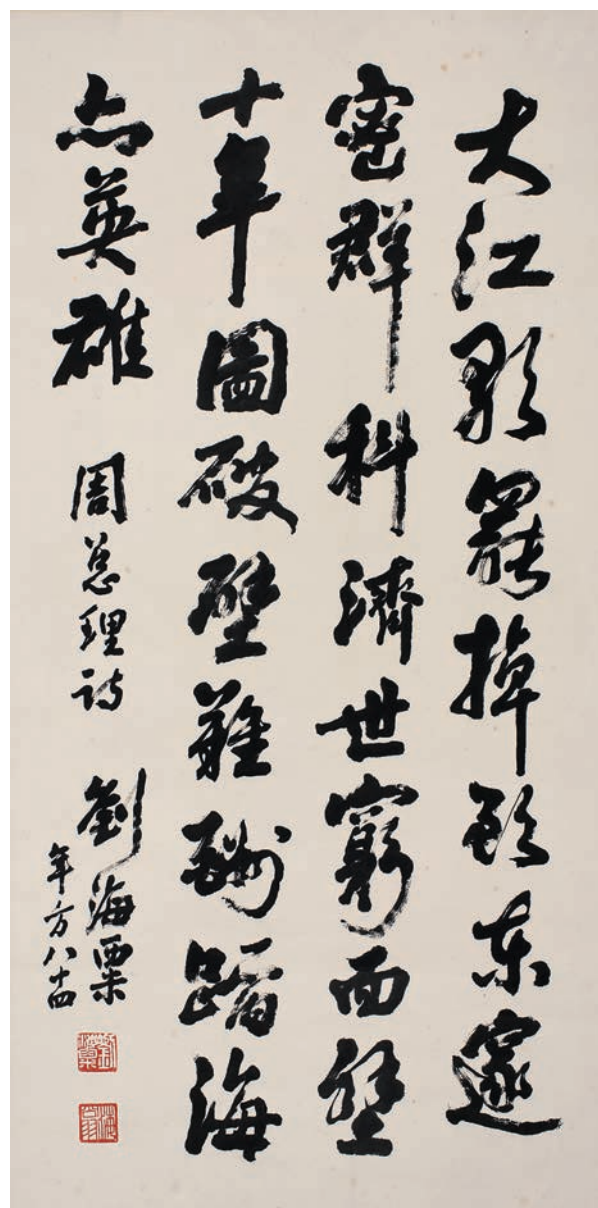 大江歌罷掉頭東邃
密群科濟世窮面壁
十年圖破壁難酬蹈海
亦英雄
周總理詩
劉海粟
年方八十四
劉海粟